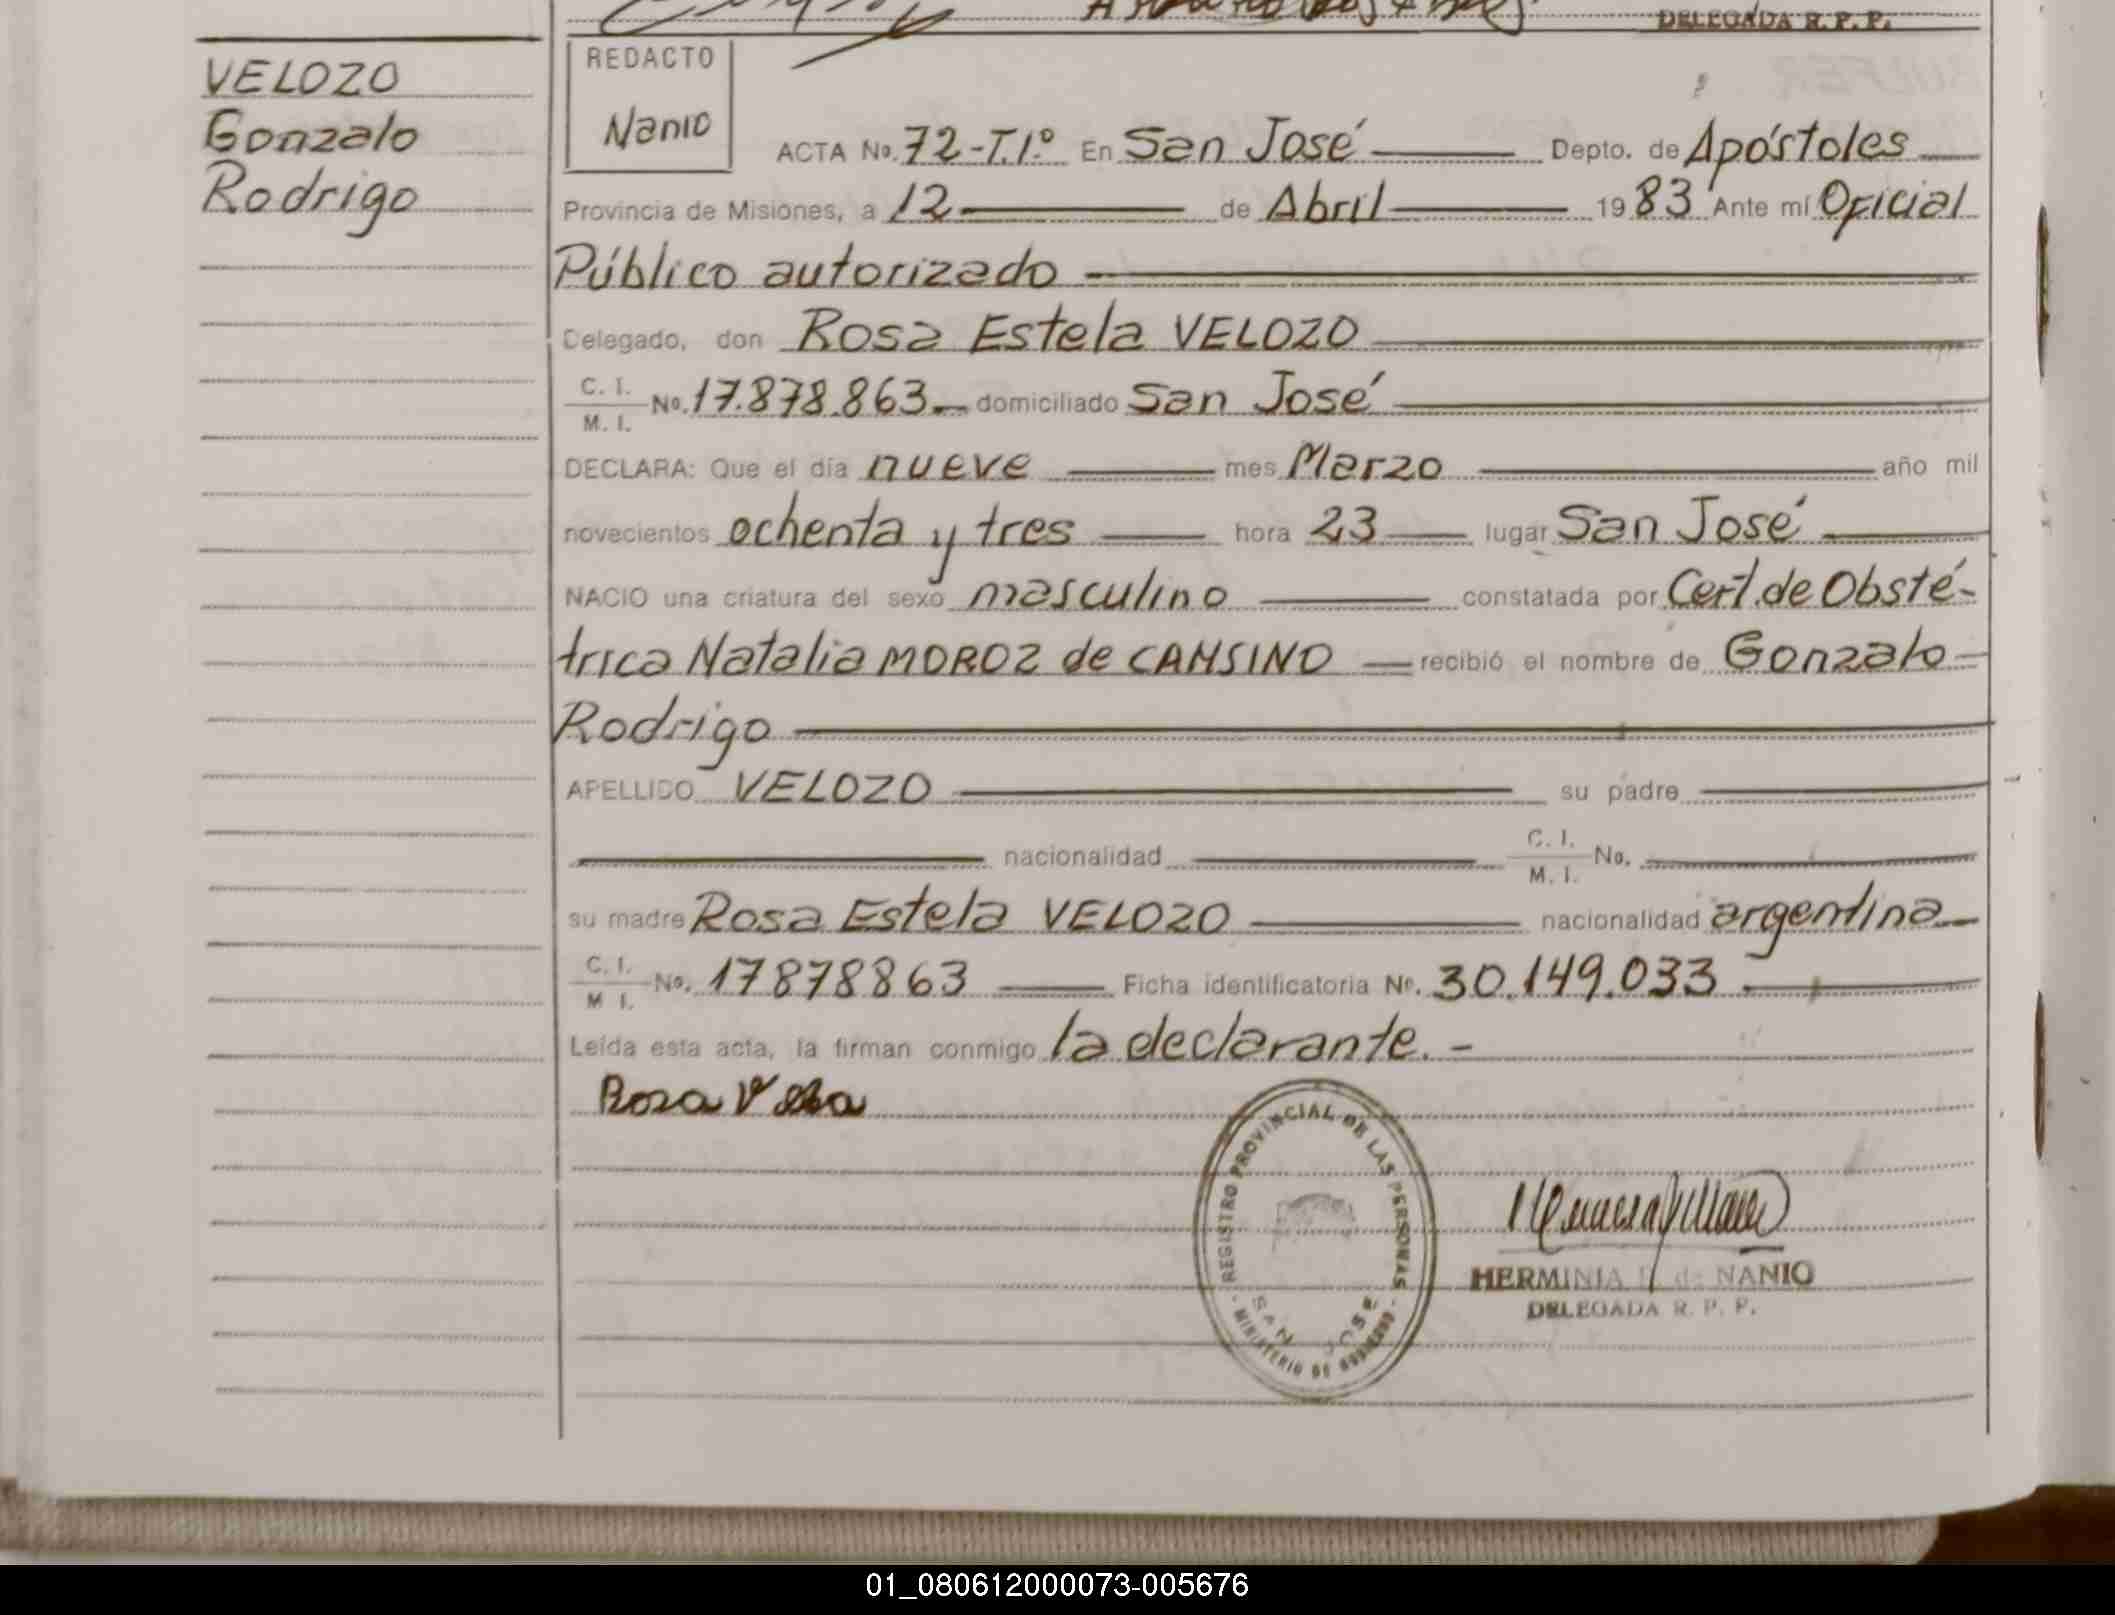 DELEGADA R. P. P.
VELOZO
Gonzalo
Rodrigo
REDACTO
Nanio
ACTA No. 72-T.1º En San José Depto. de Apóstoles
Provincia de Misiones, a 12 de Abril 1983 Ante mí Oficial
Público autorizado
Delegado, don Rosa Estela VELOZO
C. I. / M. I. No. 17.878.863.- domiciliado San José
DECLARA: Que el día nueve mes Marzo año mil
novecientos ochenta y tres hora 23 lugar San José
NACIO una criatura del sexo masculino constatada por Cert. de Obsté-
trica Natalia MOROZ de CANSINO recibió el nombre de Gonzalo
Rodrigo
APELLIDO VELOZO su padre
nacionalidad C. I. / M. I. No.
su madre Rosa Estela VELOZO nacionalidad argentina
C. I. / M I. No. 17878863 Ficha identificatoria No. 30.149.033.
Leída esta acta, la firman conmigo la declarante. -
Rosa
REGISTRO PROVINCIAL DE LAS PERSONAS
SAN JOSE
- MINISTERIO DE GOBIERNO -
HERMINIA de NANIO
DELEGADA R. P. P.
01_080612000073-005676